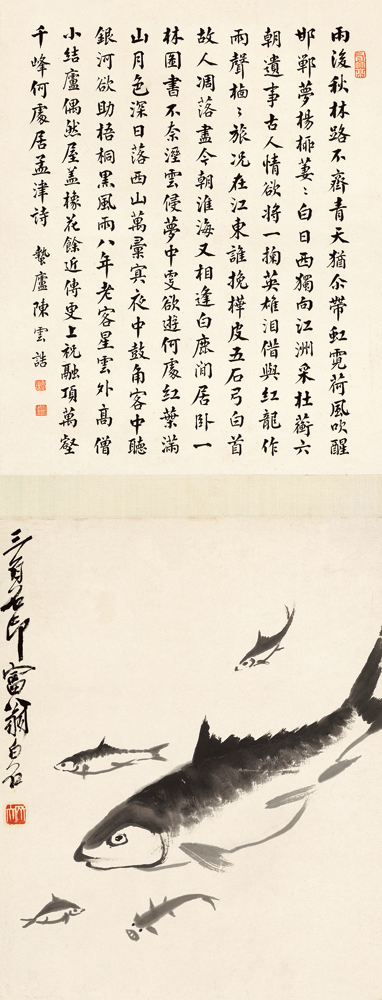 雨後秋林路不齊青天猶尒帶虹霓荷風吹醒
邯鄲夢楊柳萋〻白日西獨向江洲采杜蘅六
朝遺事古人情欲將一掬英雄泪借與紅龍作
雨聲楠〻旅况在江東誰挽樺皮五石弓白首
故人凋落盡今朝淮海又相逢白鹿間居卧一
林圖書不奈溼雲侵夢中雯欲遊何處紅葉滿
山月色深日落西山萬彙冥夜中鼓角客中聽
銀河欲助梧桐黑風雨八年老客星雲外高僧
小結廬偶然屋蓋橡花餘近傳更上祝融頂萬壑
千峰何處居孟津詩
蟄廬陳雲誥
三百石印富翁白石